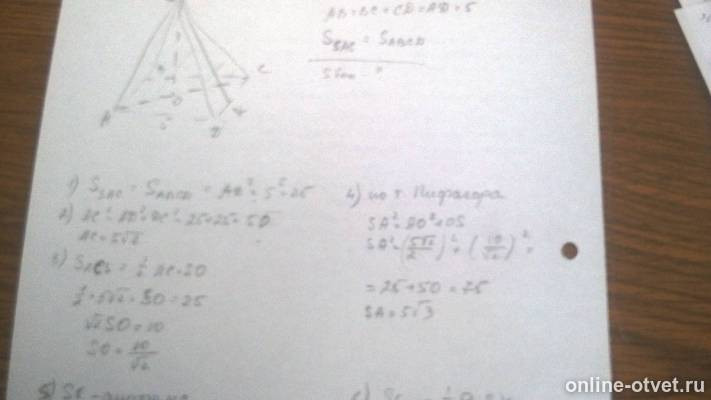 AB = BC = CD = AD = 5
S_SAC = S_ABCD
C
A
O
5
B
1) S_SAC = S_ABCD = AB² = 5² = 25
2) AC² = AB² + BC² = 25 + 25 = 50
AC = 5√2
3) S = 1/2 AC · SO
1/2 · 5√2 · SO = 25
√2 SO = 10
SO = 10/√2
4) по т. Пифагора
SA² = AO² + OS
SA² = (5√2/2)² + (10/√2)² =
= 25 + 50 = 75
SA = 5√3
5) SK -
6) SK
online-otvet.ru